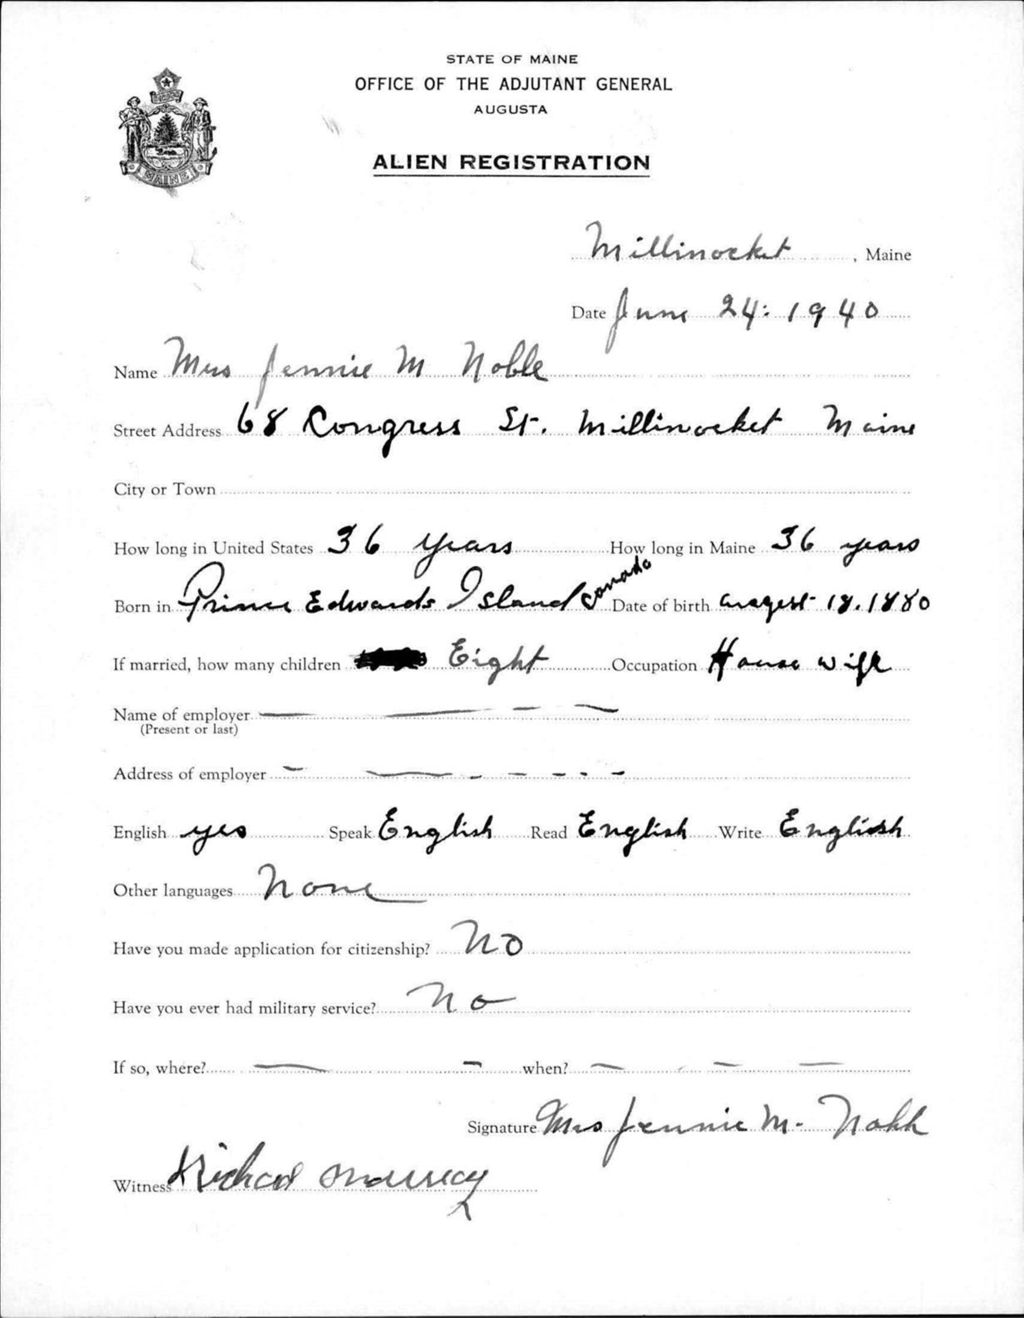 STATE OF MAINE
OFFICE OF THE ADJUTANT GENERAL
AUGUSTA
ALIEN REGISTRATION
MAINE
Millinocket, Maine
Date June 24: 1940
Name Mrs Jennie M Noble
Street Address 68 Congress St. Millinocket Maine
City or Town
How long in United States 36 Years How long in Maine 36 years
Born in Prince Edwards Island Canada Date of birth August 18, 1880
If married, how many children Eight Occupation House wife
Name of employer
(Present or last)
Address of employer
English yes Speak English Read English Write English
Other languages None
Have you made application for citizenship? No
Have you ever had military service? No
If so, where? when?
Signature Mrs Jennie M. Noble
Witness Richard